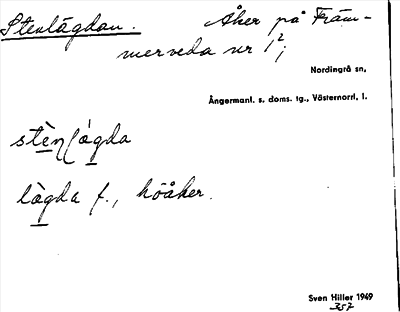 Stenlägdan. Åker på Främ-
merveda nr 1²;
Nordingrå sn,
Ångermanl. s. doms. tg., Västernorrl. l.
stè̱nlàgda
lạ̀gda f., höåker.
Sven Hiller 1949
357